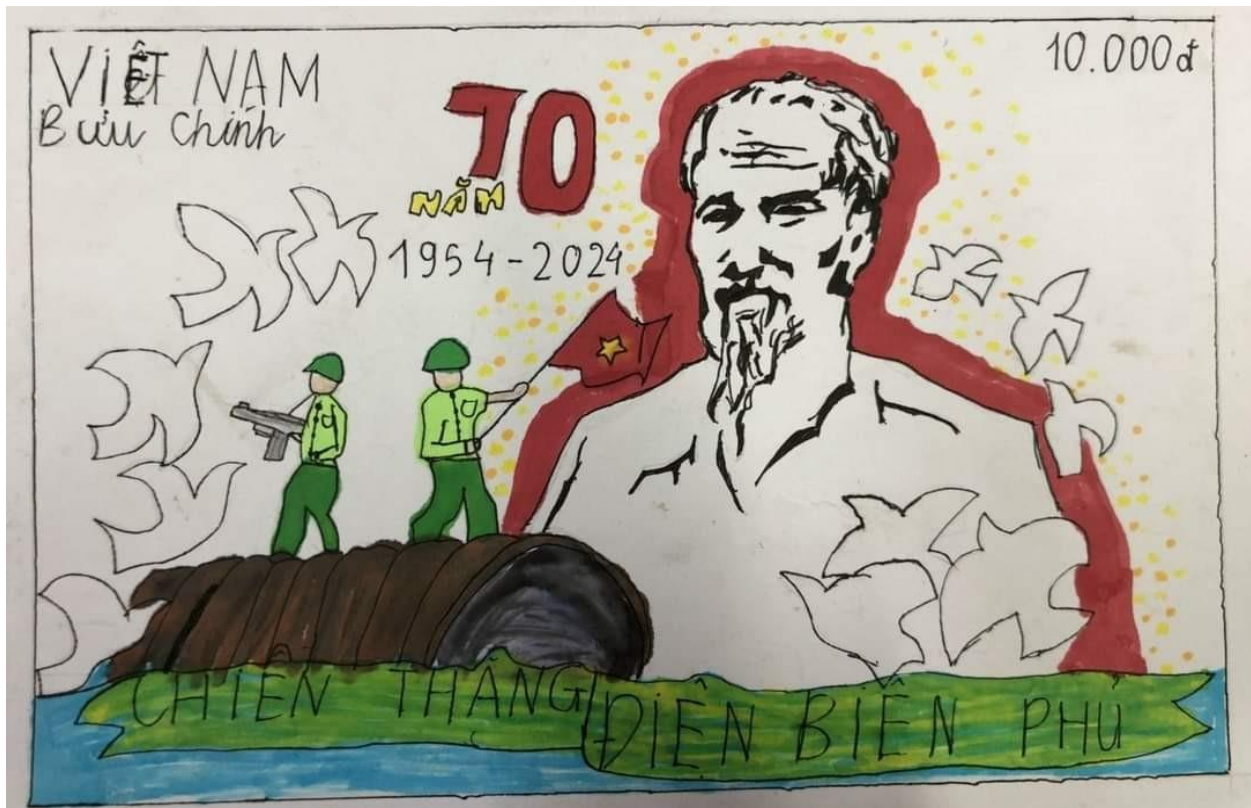 VIỆT NAM
Bưu chính
10.000đ
70
NĂM
1954-2024
CHIẾN THẮNG
ĐIỆN BIÊN PHỦ